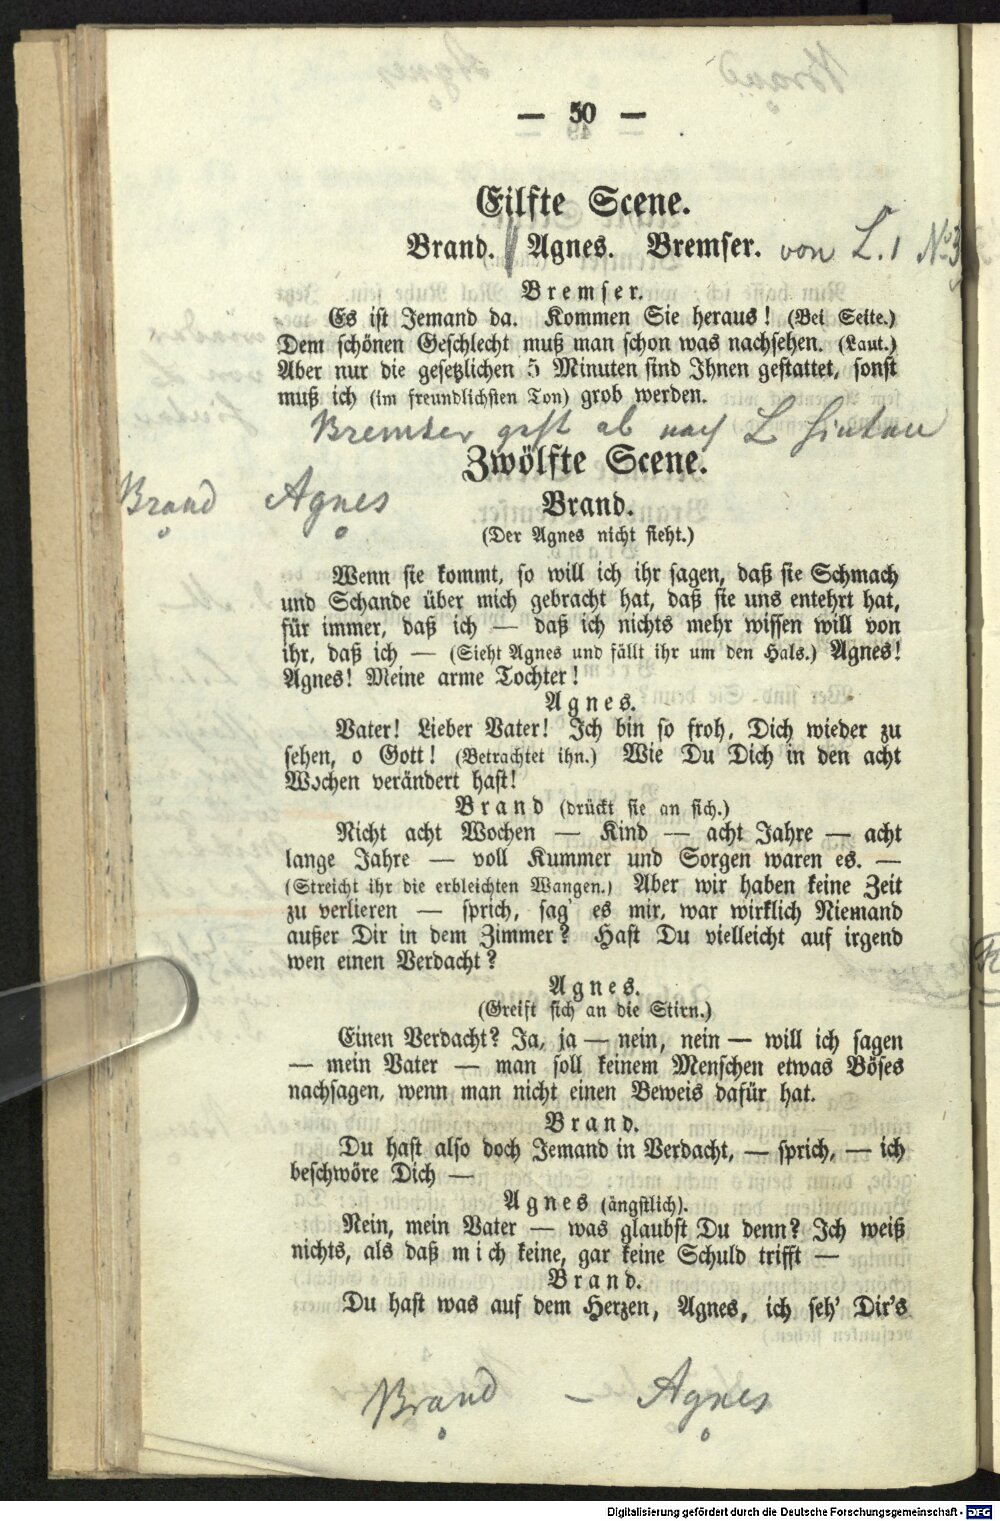 — 50 —
Eilfte Scene.
Brand. Agnes. Bremser. von L. 1 No 3
Bremser.
Es ist Jemand da. Kommen Sie heraus! (Bei Seite.)
Dem schönen Geschlecht muß man schon was nachsehen. (Laut.)
Aber nur die gesetzlichen 5 Minuten sind Ihnen gestattet, sonst
muß ich (im freundlichsten Ton) grob werden.
Bremser geht ab nach L hinten
Zwölfte Scene.
Brand Agnes
Brand.
(Der Agnes nicht sieht.)
Wenn sie kommt, so will ich ihr sagen, daß sie Schmach
und Schande über mich gebracht hat, daß sie uns entehrt hat,
für immer, daß ich — daß ich nichts mehr wissen will von
ihr, daß ich — (Sieht Agnes und fällt ihr um den Hals.) Agnes!
Agnes! Meine arme Tochter!
Agnes.
Vater! Lieber Vater! Ich bin so froh, Dich wieder zu
sehen, o Gott! (Betrachtet ihn.) Wie Du Dich in den acht
Wochen verändert hast!
Brand (drückt sie an sich.)
Nicht acht Wochen — Kind — acht Jahre — acht
lange Jahre — voll Kummer und Sorgen waren es. —
(Streicht ihr die erbleichten Wangen.) Aber wir haben keine Zeit
zu verlieren — sprich, sag' es mir, war wirklich Niemand
außer Dir in dem Zimmer? Hast Du vielleicht auf irgend
wen einen Verdacht?
Agnes.
(Greift sich an die Stirn.)
Einen Verdacht? Ja, ja — nein, nein — will ich sagen
— mein Vater — man soll keinem Menschen etwas Böses
nachsagen, wenn man nicht einen Beweis dafür hat.
Brand.
Du hast also doch Jemand in Verdacht, — sprich, — ich
beschwöre Dich —
Agnes (ängstlich).
Nein, mein Vater — was glaubst Du denn? Ich weiß
nichts, als daß mich keine, gar keine Schuld trifft —
Brand.
Du hast was auf dem Herzen, Agnes, ich seh' Dir's
Brand — Agnes
Digitalisierung gefördert durch die Deutsche Forschungsgemeinschaft - DFG